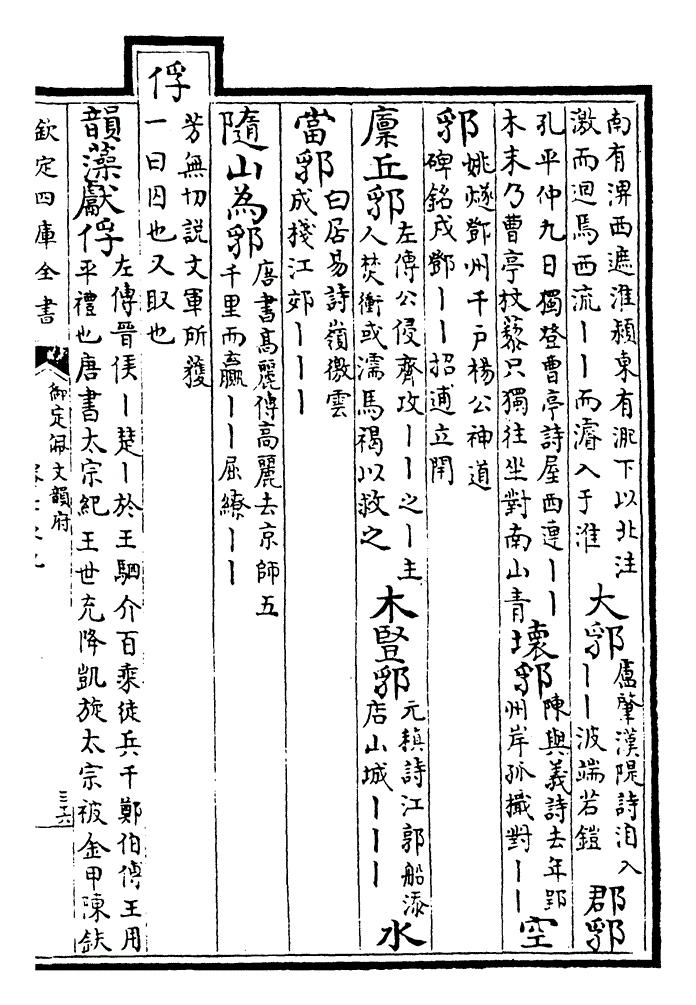 南有淠西遮淮潁東有淝下以北注
激而迴焉西流丨丨而濬入于淮
大郛
盧肇漢隄詩洎入
丨丨波端若鎧
郡郛
孔平仲九日獨登曹亭詩屋西連丨丨
木末乃曹亭杖藜只獨往坐對南山青
壞郛
陳與義詩去年郢
州岸孤檝對丨丨
空
郛
姚燧鄧州千戶楊公神道
碑銘戍鄧丨丨招逋立閈
廩丘郛
左傳公侵齊攻丨丨之丨主
人焚衝或濡馬褐以救之
木豎郛
元稹詩江郭船添
店山城丨丨丨
水
當郛
白居易詩嶺徼雲
成棧江郊丨丨丨
隨山為郛
唐書高麗傳高麗去京師五
千里而贏丨丨屈繚丨丨
俘
芳無切說文軍所獲
一曰囚也又取也
韻藻獻俘
左傳晉侯丨楚丨於王駟介百乘徒兵千鄭伯傅王用
平禮也唐書太宗紀王世充降凱旋太宗被金甲陳鐵
欽定四庫全書
御定佩文韻府
三六